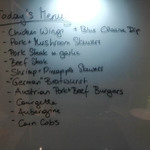 Today's Menu
- Chicken Wings + Blue Cheese Dip
- Pork + Mushroom Skewers
- Pork Steak in garlic
- Beef Steak
- Shrimp + Pineapple Skewers
- German Bratwurst
- Austrian Pork + Beef Burgers
- Courgette
- Aubergine
- Corn Cobs